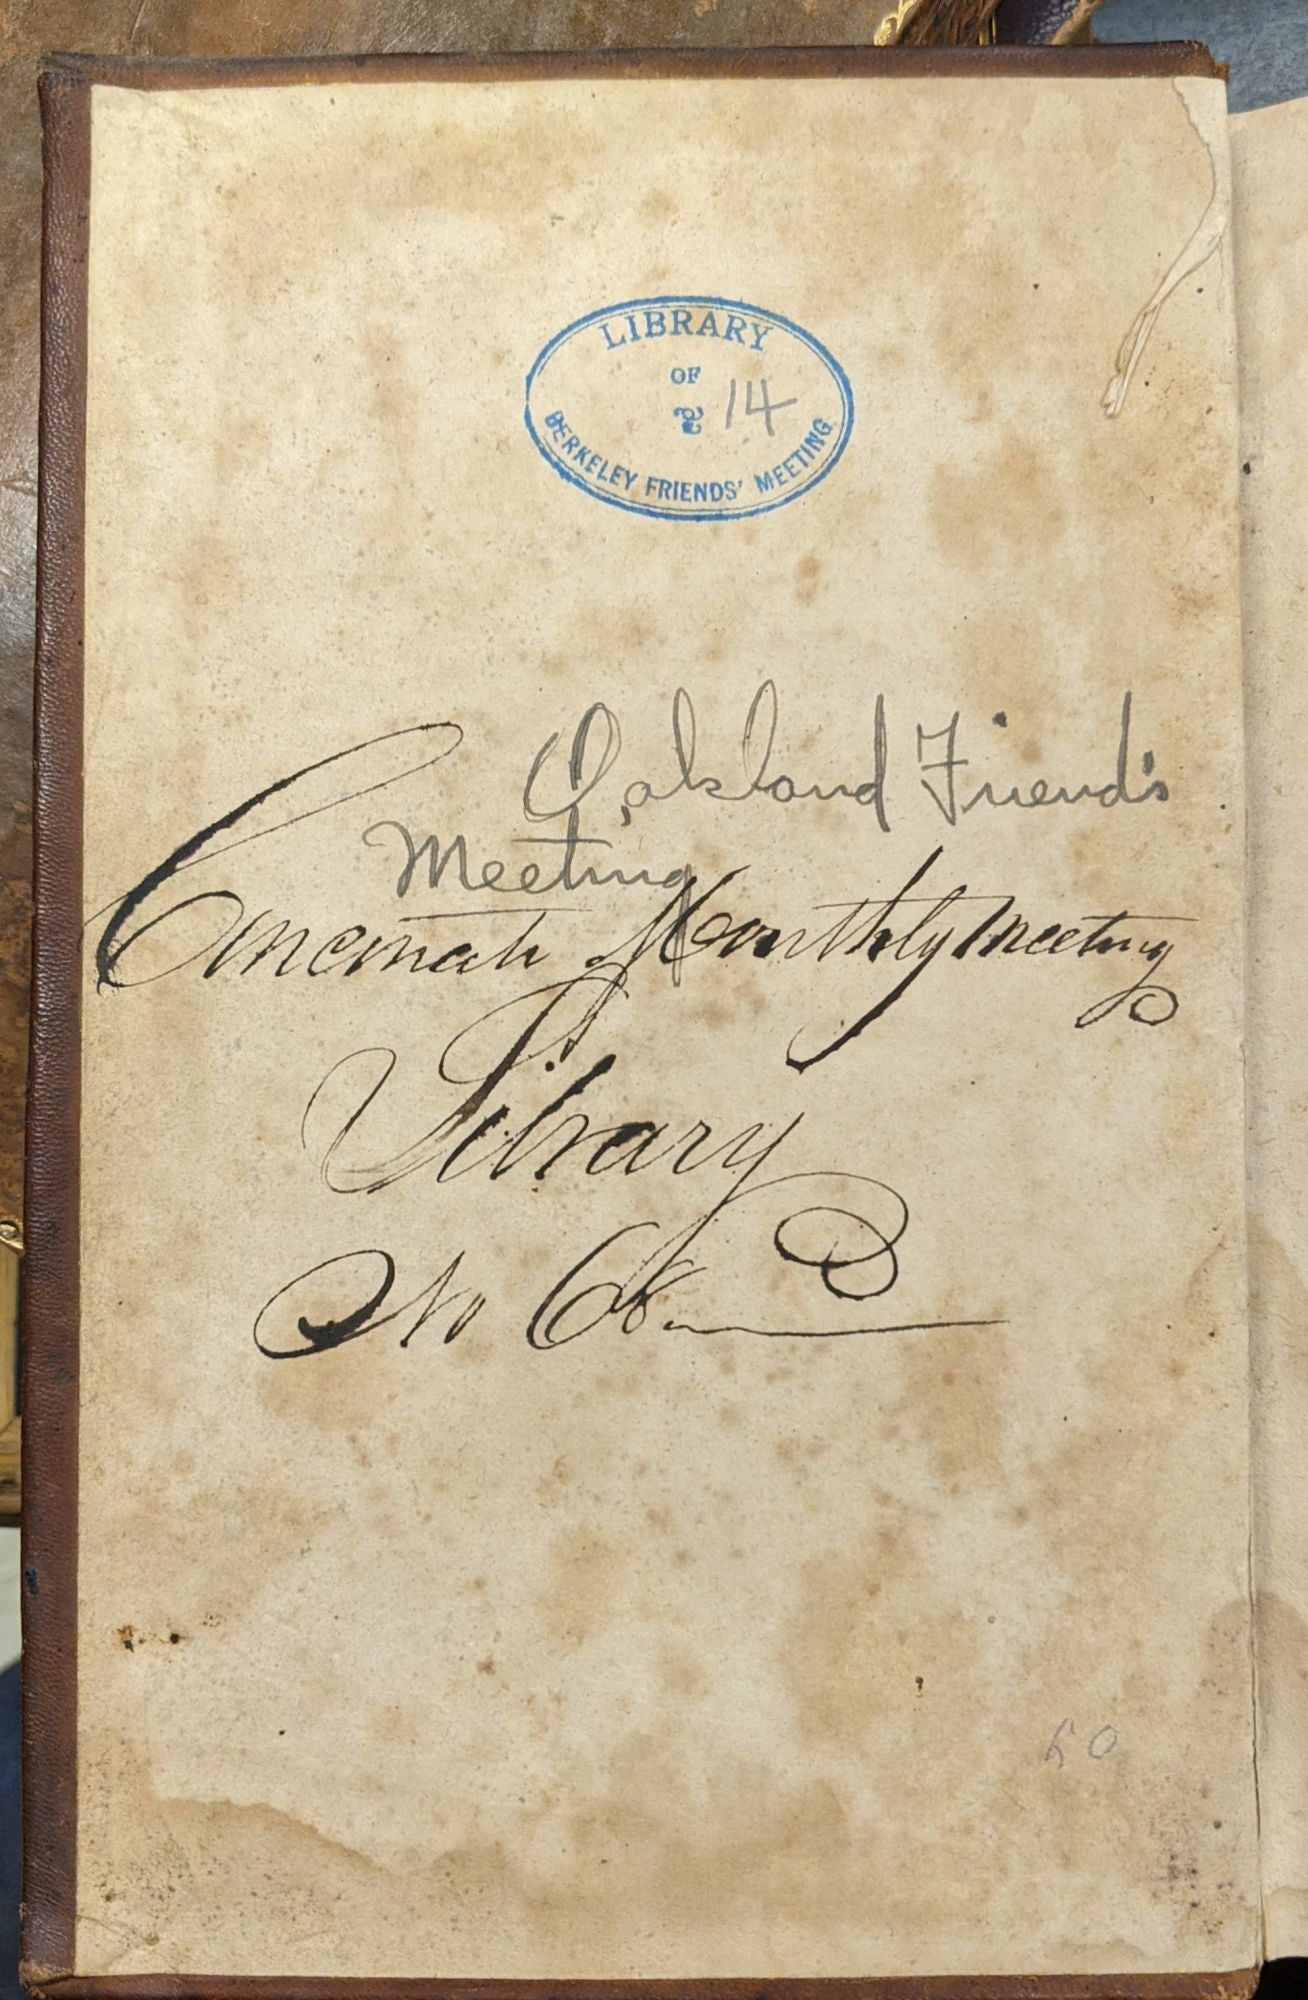 LIBRARY
OF
14
BERKELEY FRIENDS' MEETING
Oakland Friend's
Meeting
Cincinati Monthly Meeting
Library
No 68
50